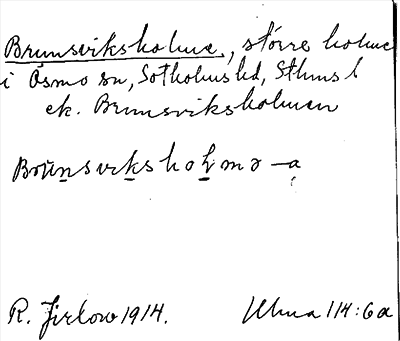 Brunsviksholme, större holme
i Ösmo sn, Sotholms hd, Sthms l
ek. Brunsviksholmen
Brunsviksholmə –a
R. Jirlow 1914. Ulma 114:6a